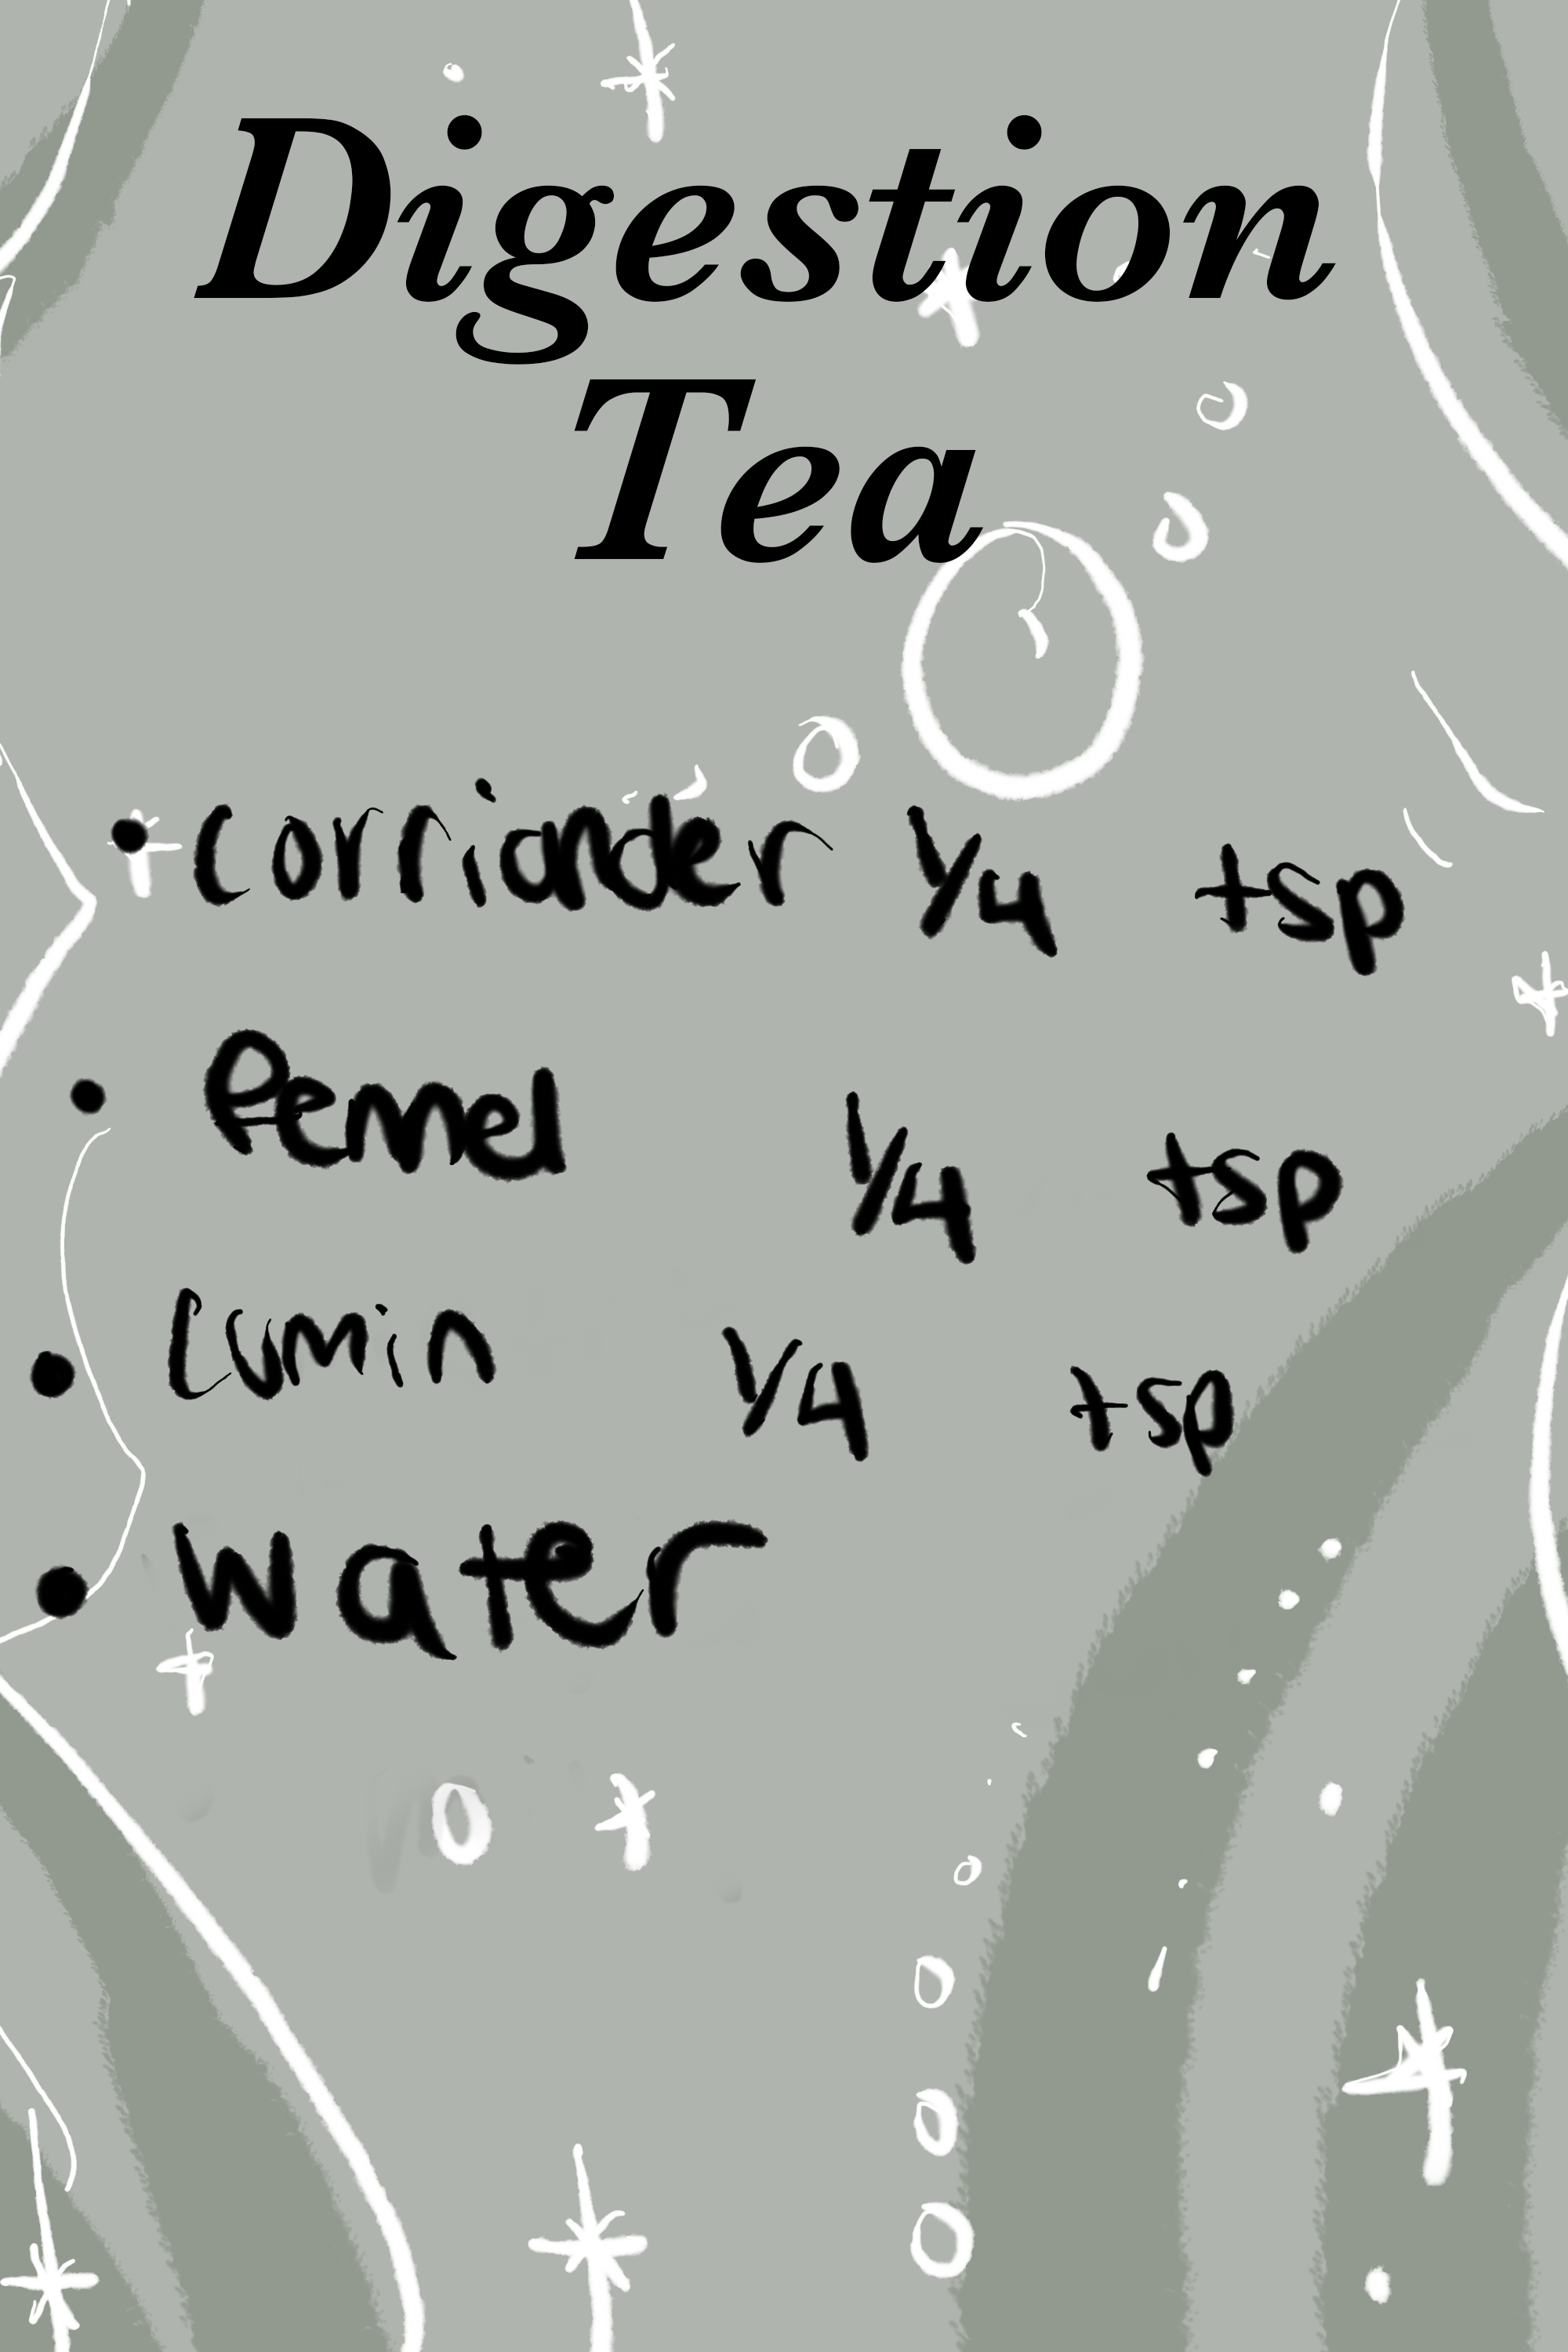 Digestion
Tea
• Corriander 1/4 tsp
• Fennel 1/4 tsp
• Cumin 1/4 tsp
• Water